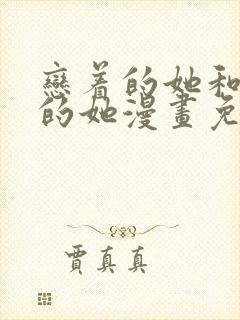 戀著的她和
的她漫畫免
賈真真